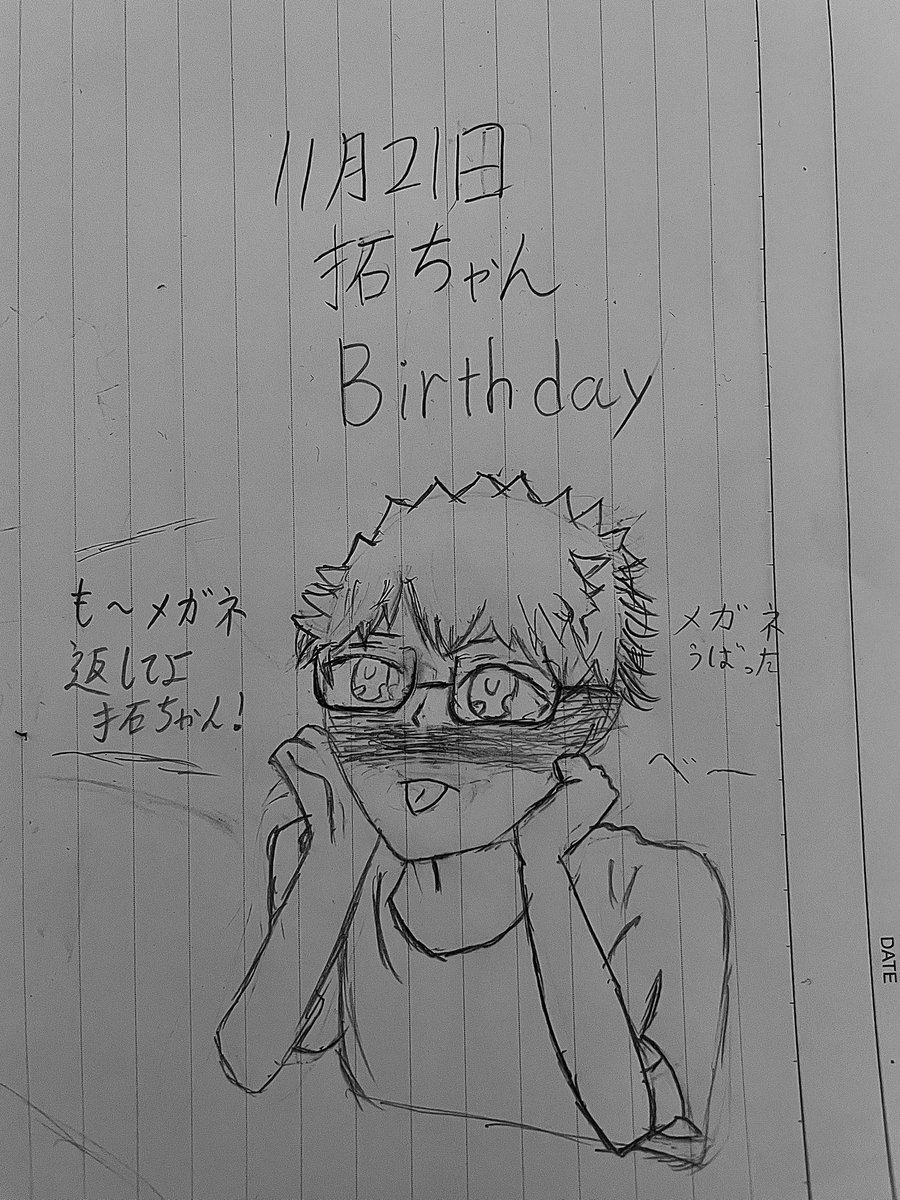 11月21日
拓ちゃん
Birthday
も～メガネ
返してよ
拓ちゃん!
メガネ
うばった
べー
DATE